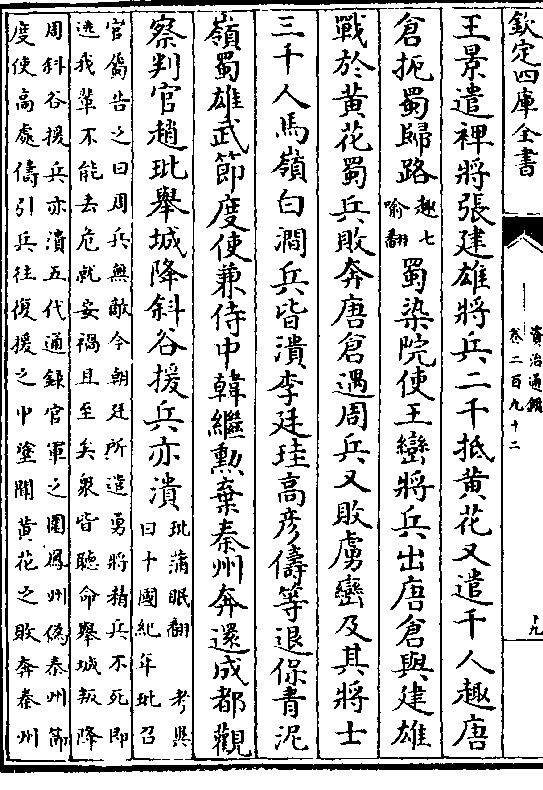 欽定四庫全書
資治通鑑
卷二百九十二
十九
王景遣裨將張建雄將兵二千抵黄花又遣千人趣唐
倉扼蜀歸路
趣七
喻翻
蜀染院使王巒將兵出唐倉與建雄
戰於黄花蜀兵敗奔唐倉遇周兵又敗虜巒及其將士
三千人馬嶺白澗兵皆潰李廷珪高彦儔等退保青泥
嶺蜀雄武節度使兼侍中韓繼勲棄秦州奔還成都觀
察判官趙玭舉城降斜谷援兵亦潰
玭蒲眠翻 考異
曰十國紀年玭召
官屬告之曰周兵無敵今朝廷所遣勇將精兵不死即
逃我輩不能去危就妥禍且至矣衆皆聽命舉城叛降
周斜谷援兵亦潰五代通録官軍之圍鳳州僞秦州節
度使高處儔引兵往復援之中塗聞黄花之敗奔秦州